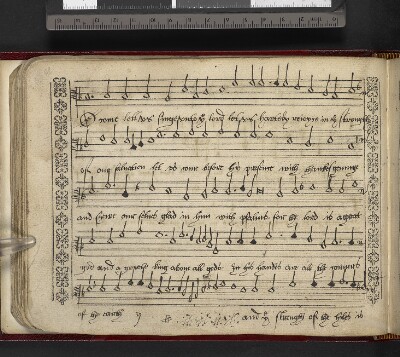 O come lett us singe unto the lord lett us hartely reioyce in the strengthe
of our salvation let us come before his presence with thankesgevinge
and shewe our selves glad in him with psalms for the lord is a great
god and a great king above all gods In his handes are all the corners
of the earth and the strength of the hills is